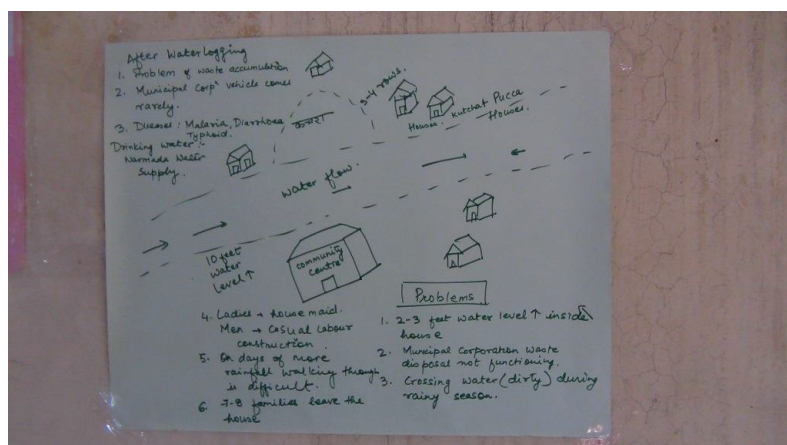 After Waterlogging
1. Problem of waste accumulation
2. Municipal Corpⁿ vehicle comes
rarely.
3. Diseases: Malaria, Diarrhoea
Typhoid.
Drinking water:-
Narmada Water
Supply.
3-4 rows.
Houses
Kutcha + Pucca
Houses.
Water flow.
10 feet
water
level ↑
community
centre
4. Ladies → house maid.
Men → Casual labour
construction.
5. On days of more
rainfall walking through
is difficult.
6. 7-8 families leave the
house
Problems
1. 2-3 feet water level ↑ inside
house
2. Municipal Corporation waste
disposal not functioning.
3. Crossing water (dirty) during
rainy season.